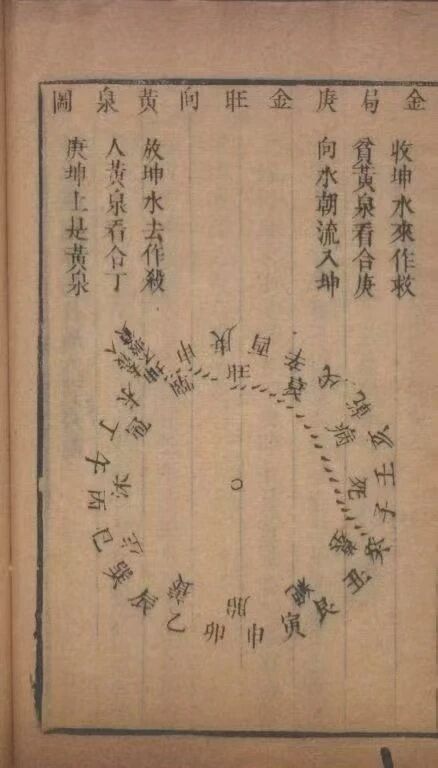 金局庚金旺向黃泉圖
收坤水來作救
貧黃泉看合庚
向水朝流入坤
放坤水去作殺
人黃泉看合丁
庚坤上是黃泉
庚酉辛戌乾亥壬子癸丑艮寅甲卯乙辰巽巳丙午丁未坤申
旺衰病死墓絕胎養